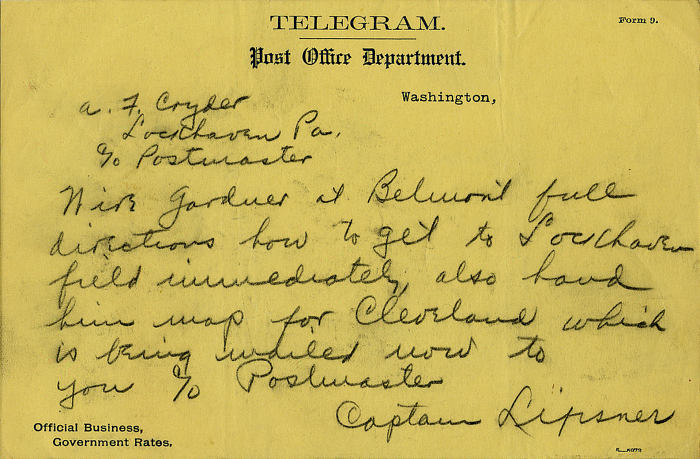 TELEGRAM.
Form 9.
Post Office Department.
Washington,
A. F. Cryder
Lockhaven Pa.
c/o Postmaster
Wire Gardner at Belmont full
directions how to get to Lockhaven
field immediately, also hand
him map for Cleveland which
is being mailed now to
you c/o Postmaster
Captain Lipsner
Official Business,
Government Rates.